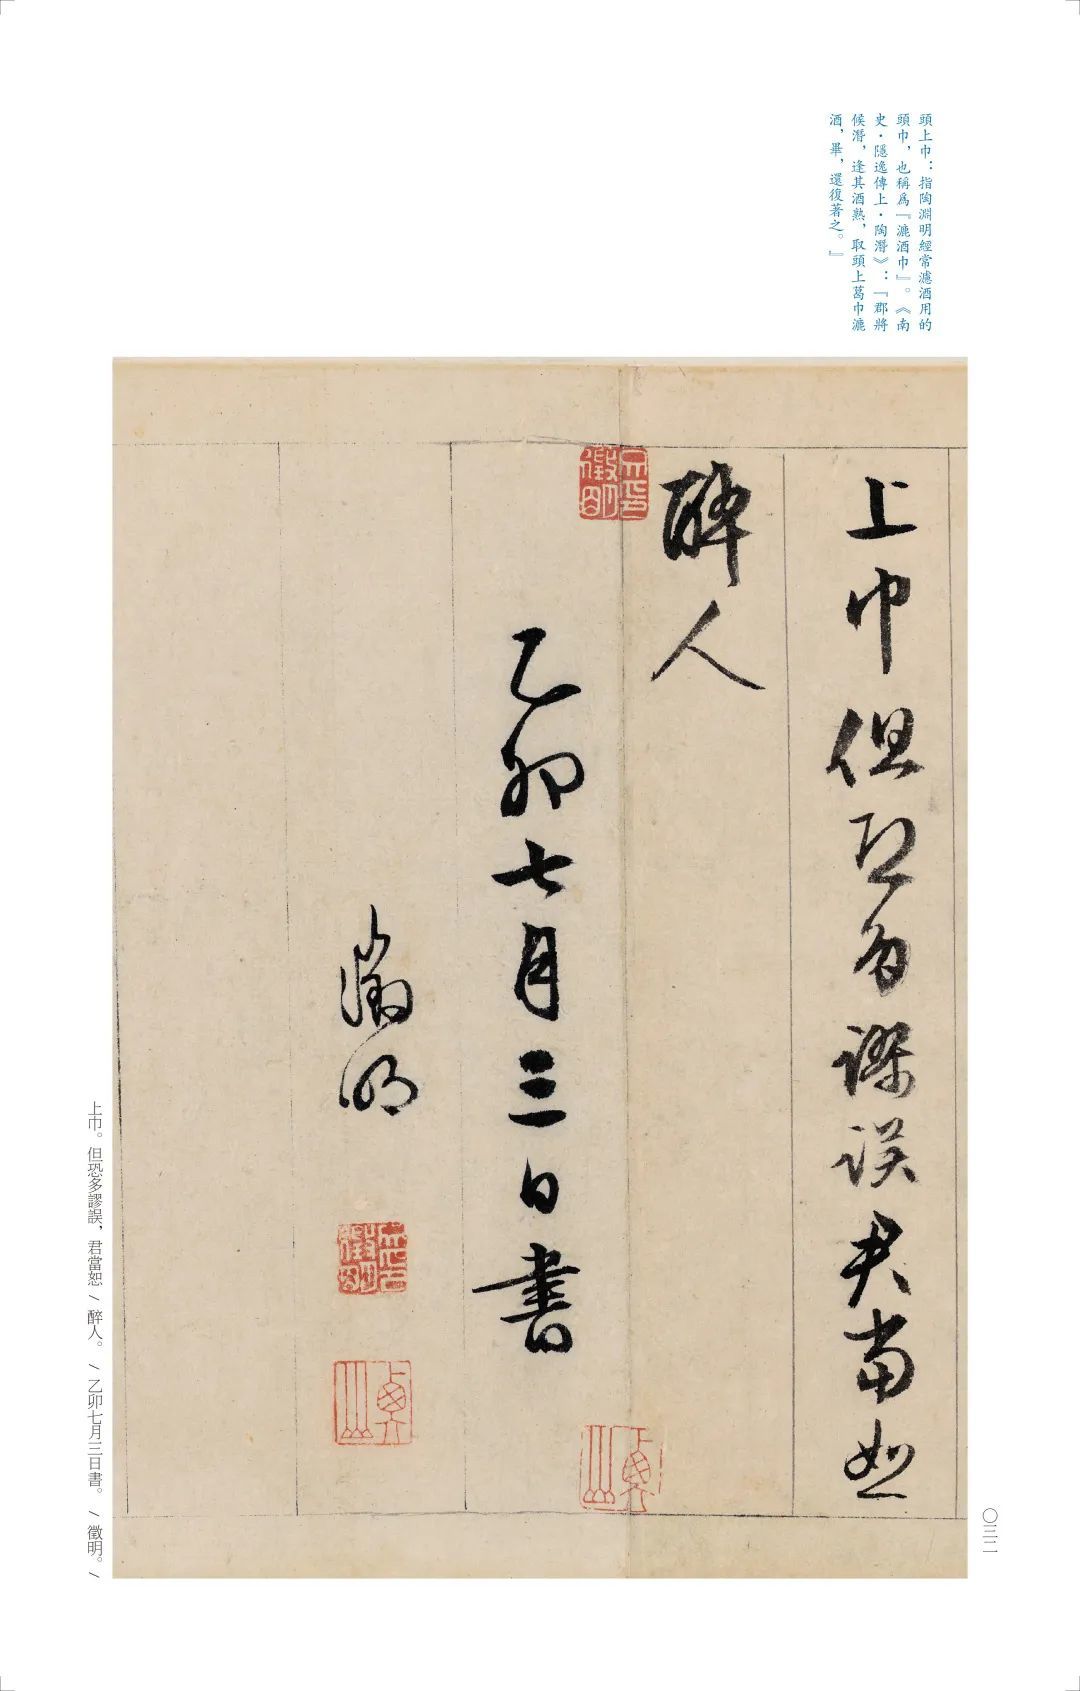 頭上巾：指陶淵明經常濾酒用的
頭巾，也稱爲『漉酒巾』。《南
史·隱逸傳上·陶潛》：『郡將
候潛，逢其酒熟，取頭上葛巾漉
酒，畢，還復著之。』
上巾但恐多謬誤君當恕
醉人
乙卯七月三日書
徵明
上巾。但恐多謬誤，君當恕／醉人。／乙卯七月三日書。／徵明。／
〇三二